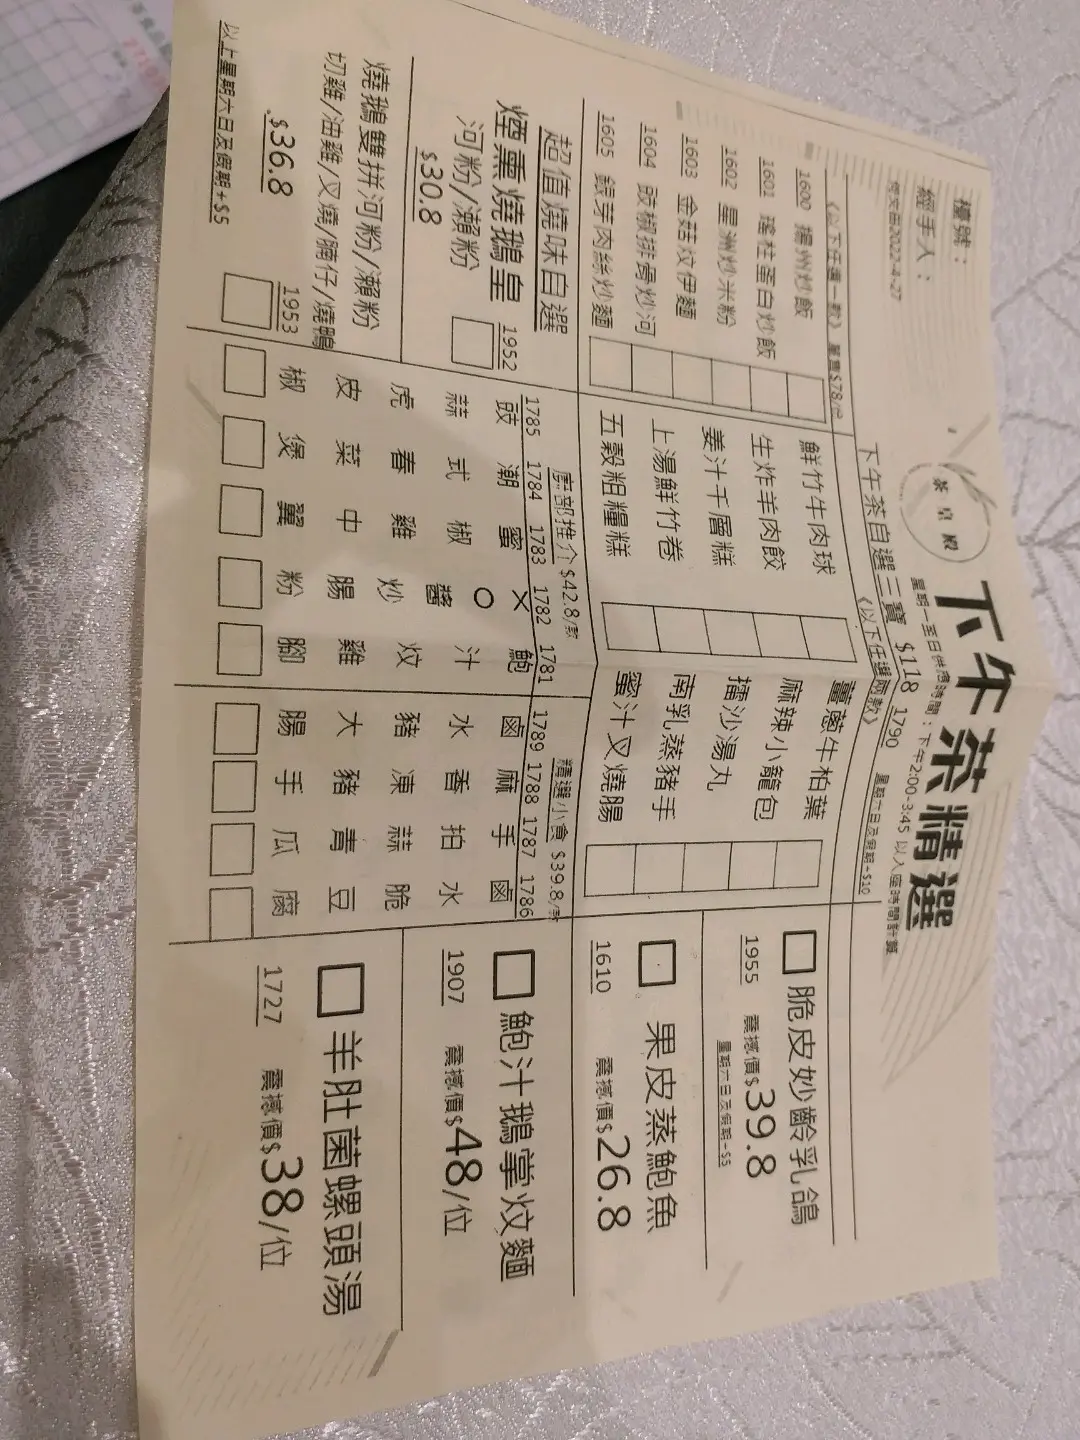 檯號：
經手人：
何文田2022-4-27
茶皇殿
下午茶精選
星期一至日供應時間：下午2:00-3:45 以入座時間計算
下午茶自選三寶 $118 1790 星期六日及假期+$10
《以下任選一款》 單賣$78/份
1600 揚州炒飯
1601 瑤柱蛋白炒飯
1602 星洲炒米粉
1603 金菇炆伊麵
1604 豉椒排骨炒河
1605 銀芽肉絲炒麵
《以下任選兩款》
鮮竹牛肉球
生炸羊肉餃
姜汁千層糕
上湯鮮竹卷
五穀粗糧糕
薑蔥牛柏葉
麻辣小籠包
擂沙湯丸
南乳蒸豬手
蜜汁叉燒腸
脆皮妙齡乳鴿
1955 震撼價$39.8
星期六日及假期+$5
果皮蒸鮑魚
1610 震撼價$26.8
超值燒味自選
煙熏燒鵝皇 1952
河粉/瀨粉
$30.8
燒鵝雙拼河粉/瀨粉
切雞/油雞/叉燒/腩仔/燒鴨
$36.8 1953
以上星期六日及假期+$5
廚部推介 $42.8/款
1785 豉蒜虎皮椒
1784 潮式春菜煲
1783 蜜椒雞中翼
1782 XO醬炒腸粉
1781 鮑汁炆雞腳
精選小食 $39.8/款
1789 鹵水豬大腸
1788 麻香凍豬手
1787 手拍蒜青瓜
1786 鹵水脆豆腐
鮑汁鵝掌炆麵
1907 震撼價$48/位
羊肚菌螺頭湯
1727 震撼價$38/位